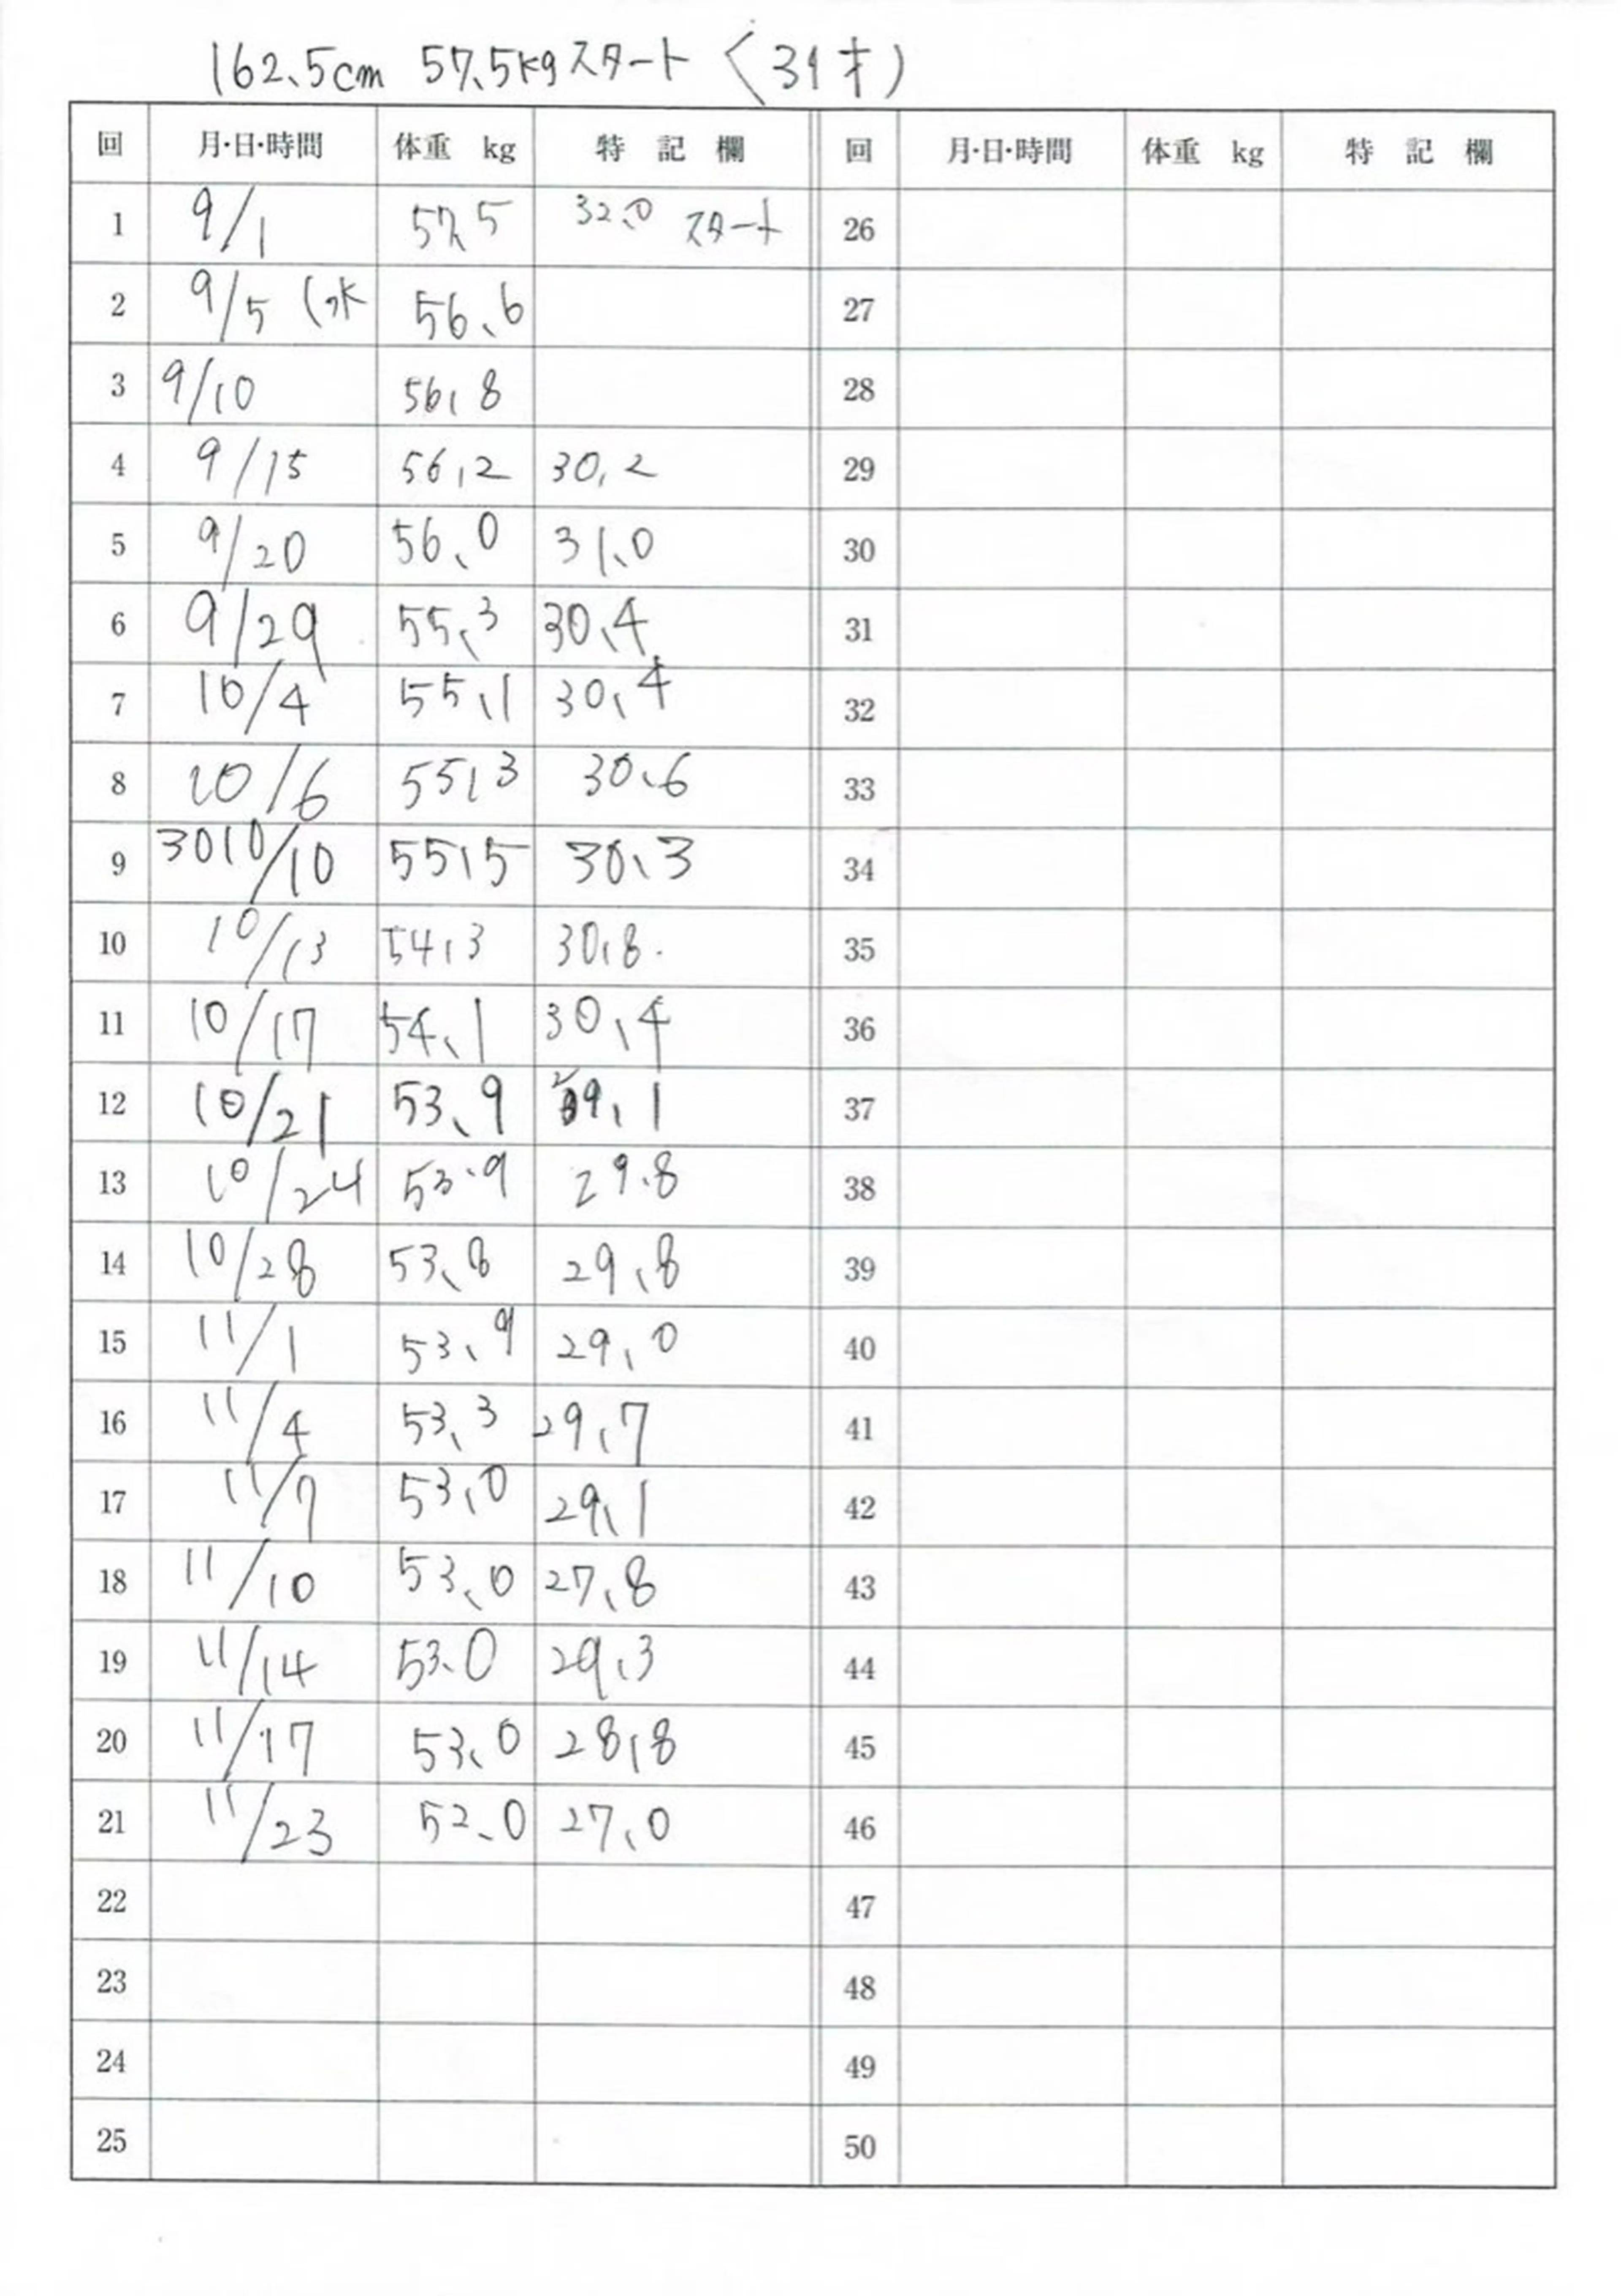 162.5cm 57.5kgスタート (31才)
回 月・日・時間 体重 kg 特記欄 回 月・日・時間 体重 kg 特記欄
1 9/1 57.5 32.0 スタート 26
2 9/5 (水 56.6 27
3 9/10 56.8 28
4 9/15 56.2 30.2 29
5 9/20 56.0 31.0 30
6 9/29 55.3 30.4 31
7 10/4 55.1 30.4 32
8 10/6 55.3 30.6 33
9 3010/10 55.5 30.3 34
10 10/13 54.3 30.8. 35
11 10/17 54.1 30.4 36
12 10/21 53.9 29.1 37
13 10/24 53.9 29.8 38
14 10/28 53.8 29.8 39
15 11/1 53.9 29.0 40
16 11/4 53.3 29.7 41
17 11/7 53.0 29.1 42
18 11/10 53.0 27.8 43
19 11/14 53.0 29.3 44
20 11/17 53.0 28.8 45
21 11/23 52.0 27.0 46
22 47
23 48
24 49
25 50